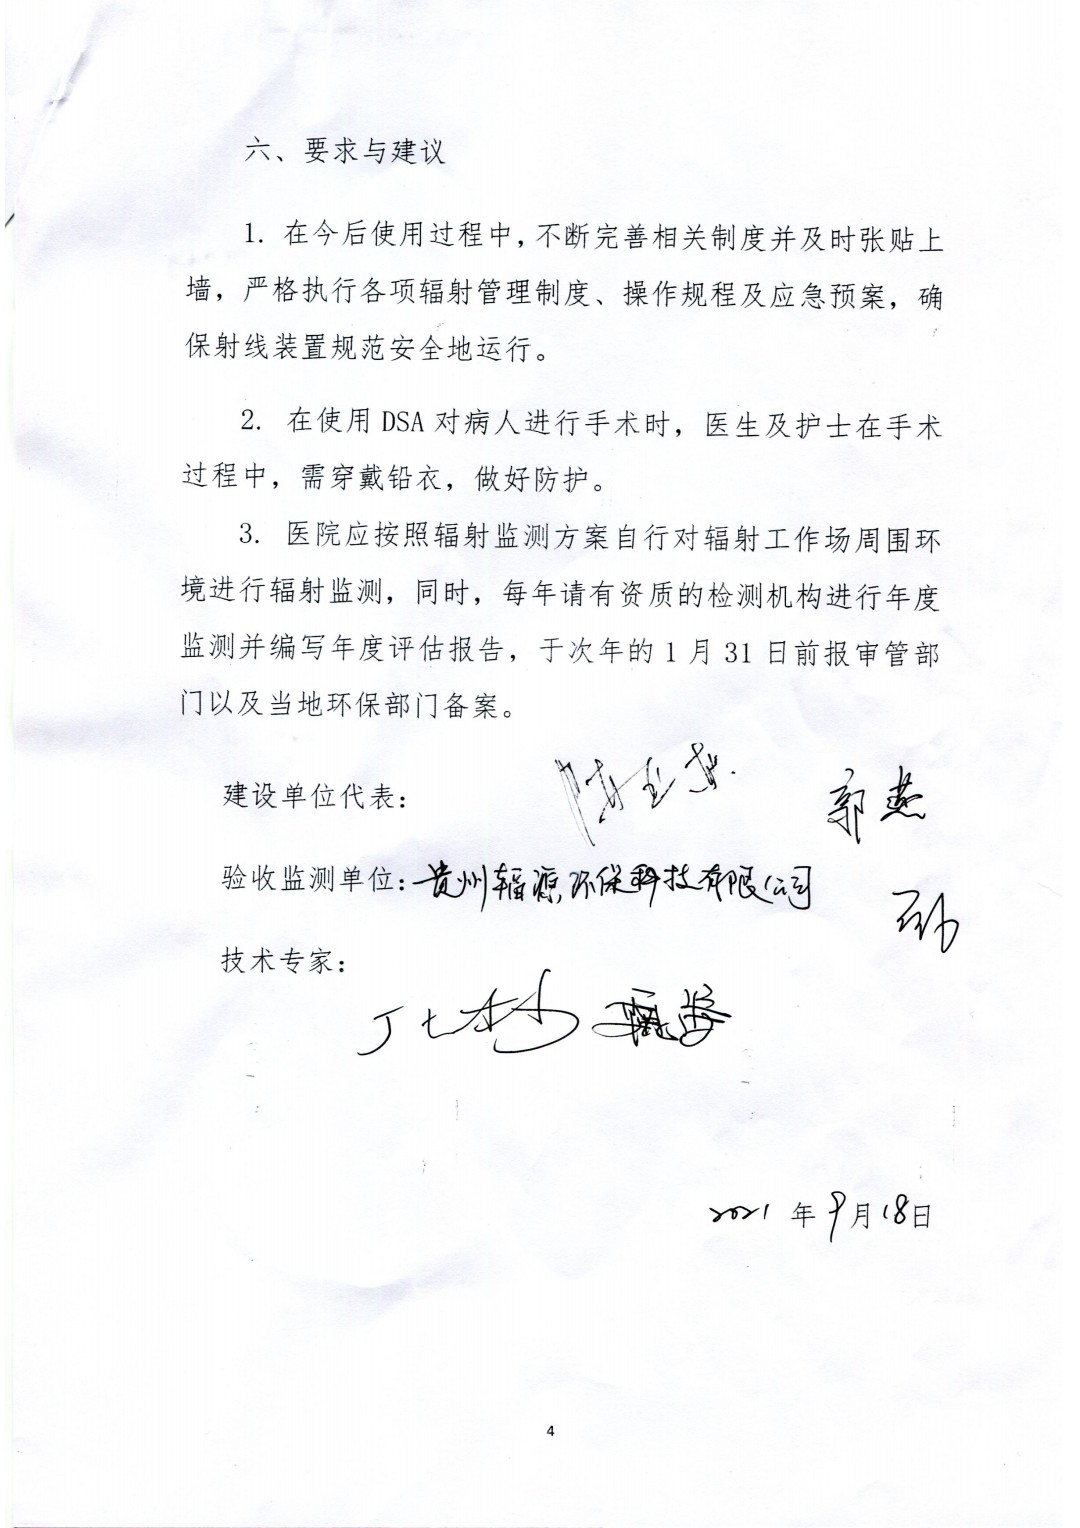 六、要求与建议
1. 在今后使用过程中，不断完善相关制度并及时张贴上
墙，严格执行各项辐射管理制度、操作规程及应急预案，确
保射线装置规范安全地运行。
2. 在使用 DSA 对病人进行手术时，医生及护士在手术
过程中，需穿戴铅衣，做好防护。
3. 医院应按照辐射监测方案自行对辐射工作场周围环
境进行辐射监测，同时，每年请有资质的检测机构进行年度
监测并编写年度评估报告，于次年的 1 月 31 日前报审管部
门以及当地环保部门备案。
建设单位代表：
郭燕
验收监测单位：贵州辐源环保科技有限公司
技术专家：
2021 年 9 月 18 日
4